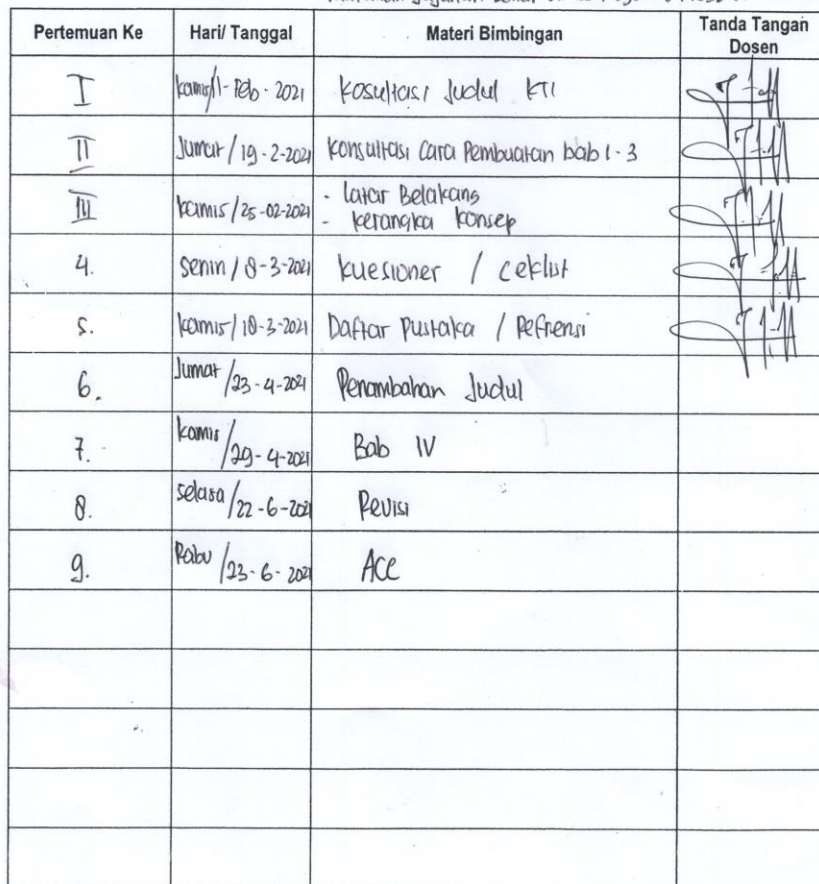 Pertemuan Ke Hari/ Tanggal Materi Bimbingan Tanda Tangan Dosen
I Kamis/1-Feb-2021 Kosultasi Judul KTI
II Jumat/19-2-2021 Konsultasi Cara Pembuatan bab 1-3
III Kamis/25-02-2021 - Latar Belakang
- Kerangka Konsep
4. Senin/8-3-2021 Kuesioner / Ceklist
5. Kamis/18-3-2021 Daftar Pustaka / Refrensi
6. Jumat/23-4-2021 Penambahan Judul
7. Kamis/29-4-2021 Bab IV
8. Selasa/22-6-2021 Revisi
9. Rabu/23-6-2021 ACC